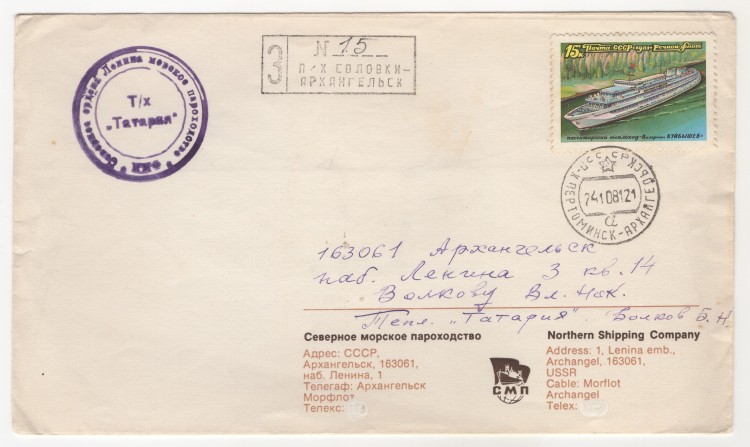 Северное ордена Ленина морское пароходство
Т/х
„Татария"
З
N 15
П/Х СОЛОВКИ-
АРХАНГЕЛЬСК
15к Почта СССР 1981 Речной флот
пассажирский теплоход «Валериан КУЙБЫШЕВ»
ПЕРТОМИНСК-АРХАНГЕЛЬСК
163061 Архангельск
наб. Ленина 3 кв. 14
Волкову Вл. Ник.
Тепл. „Татария". Волков Б. Н.
Северное морское пароходство
Адрес: СССР,
Архангельск, 163061,
наб. Ленина, 1
Телеграф: Архангельск
Морфлот
Телекс:
СМП
Northern Shipping Company
Address: 1, Lenina emb.,
Archangel, 163061,
USSR
Cable: Morflot
Archangel
Telex: